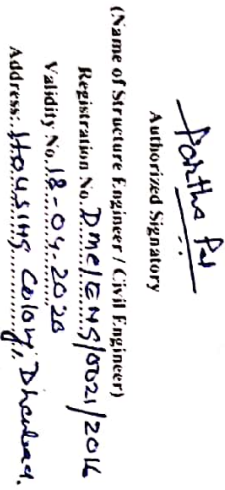 Partha Pal
Authorized Signatory
(Name of Structure Engineer / Civil Engineer)
Registration No. DMC/ENG/0021/2016
Validity No. 18-04-2026
Address: Housing Colony, Dhanbad.